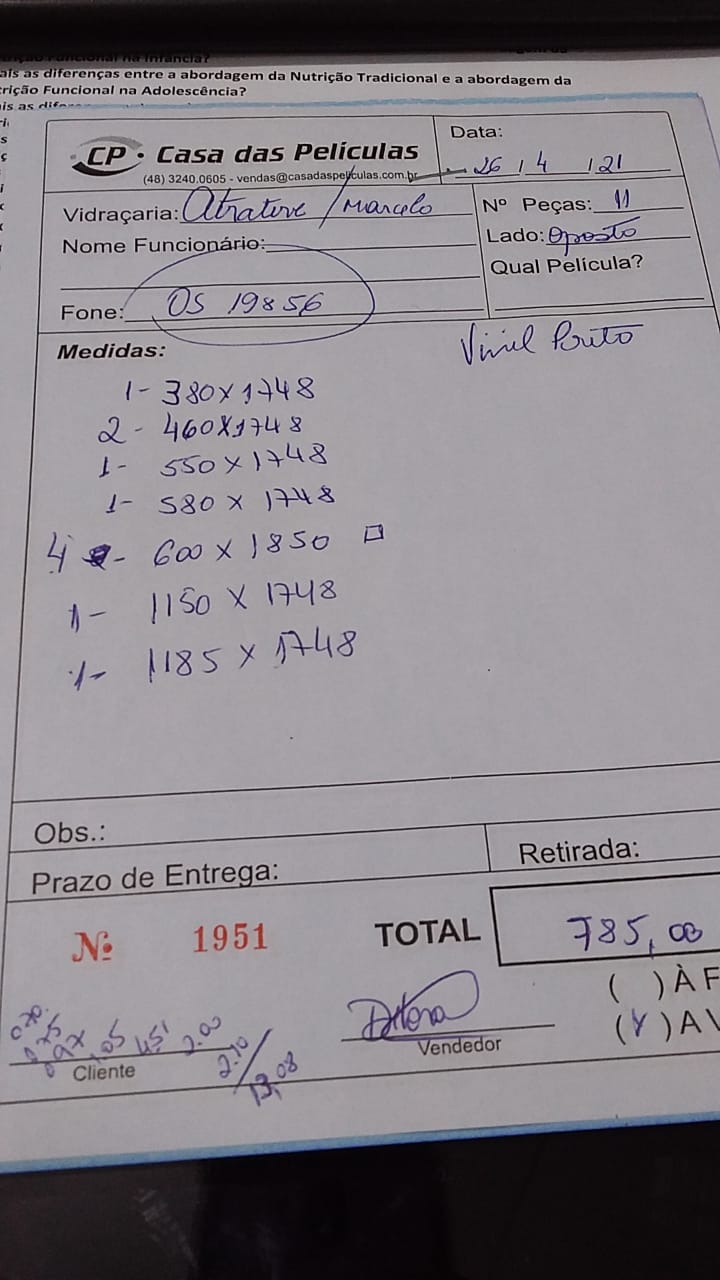 ais as diferenças entre a abordagem da Nutrição Tradicional e a abordagem da
trição Funcional na Adolescência?
CP • Casa das Películas
(48) 3240.0605 - vendas@casadaspeliculas.com.br
Data: 26/4/21
Vidraçaria: Atrative / Marcelo
Nº Peças: 11
Nome Funcionário:
Lado: Oposto
Qual Película?
Fone: OS 19856
Medidas:
Vinil Preto
1- 380x1748
2- 460x1748
1- 550x1748
1- 580x1748
4 - 600x1850
1- 1150x1748
1- 1185x1748
Obs.:
Prazo de Entrega:
Retirada:
Nº 1951
TOTAL 785,00
( ) À F
(X) A V
Vendedor
Cliente
1,05 2.00
2.10
13,08